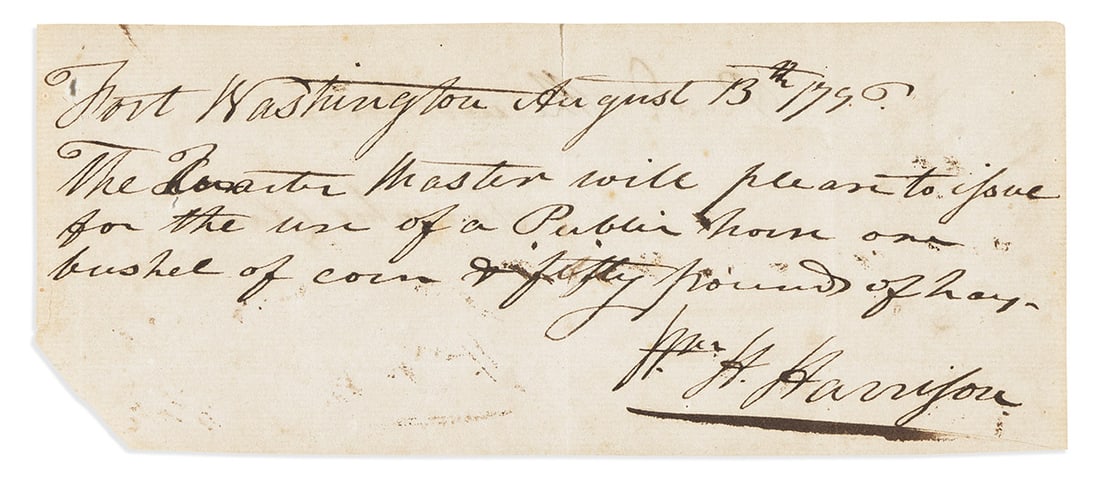 Fort Washington August 13th 1796.
The Quarter Master will please to issue
for the use of a Public horse one
bushel of corn & fifty pounds of hay-
Wm. H. Harrison